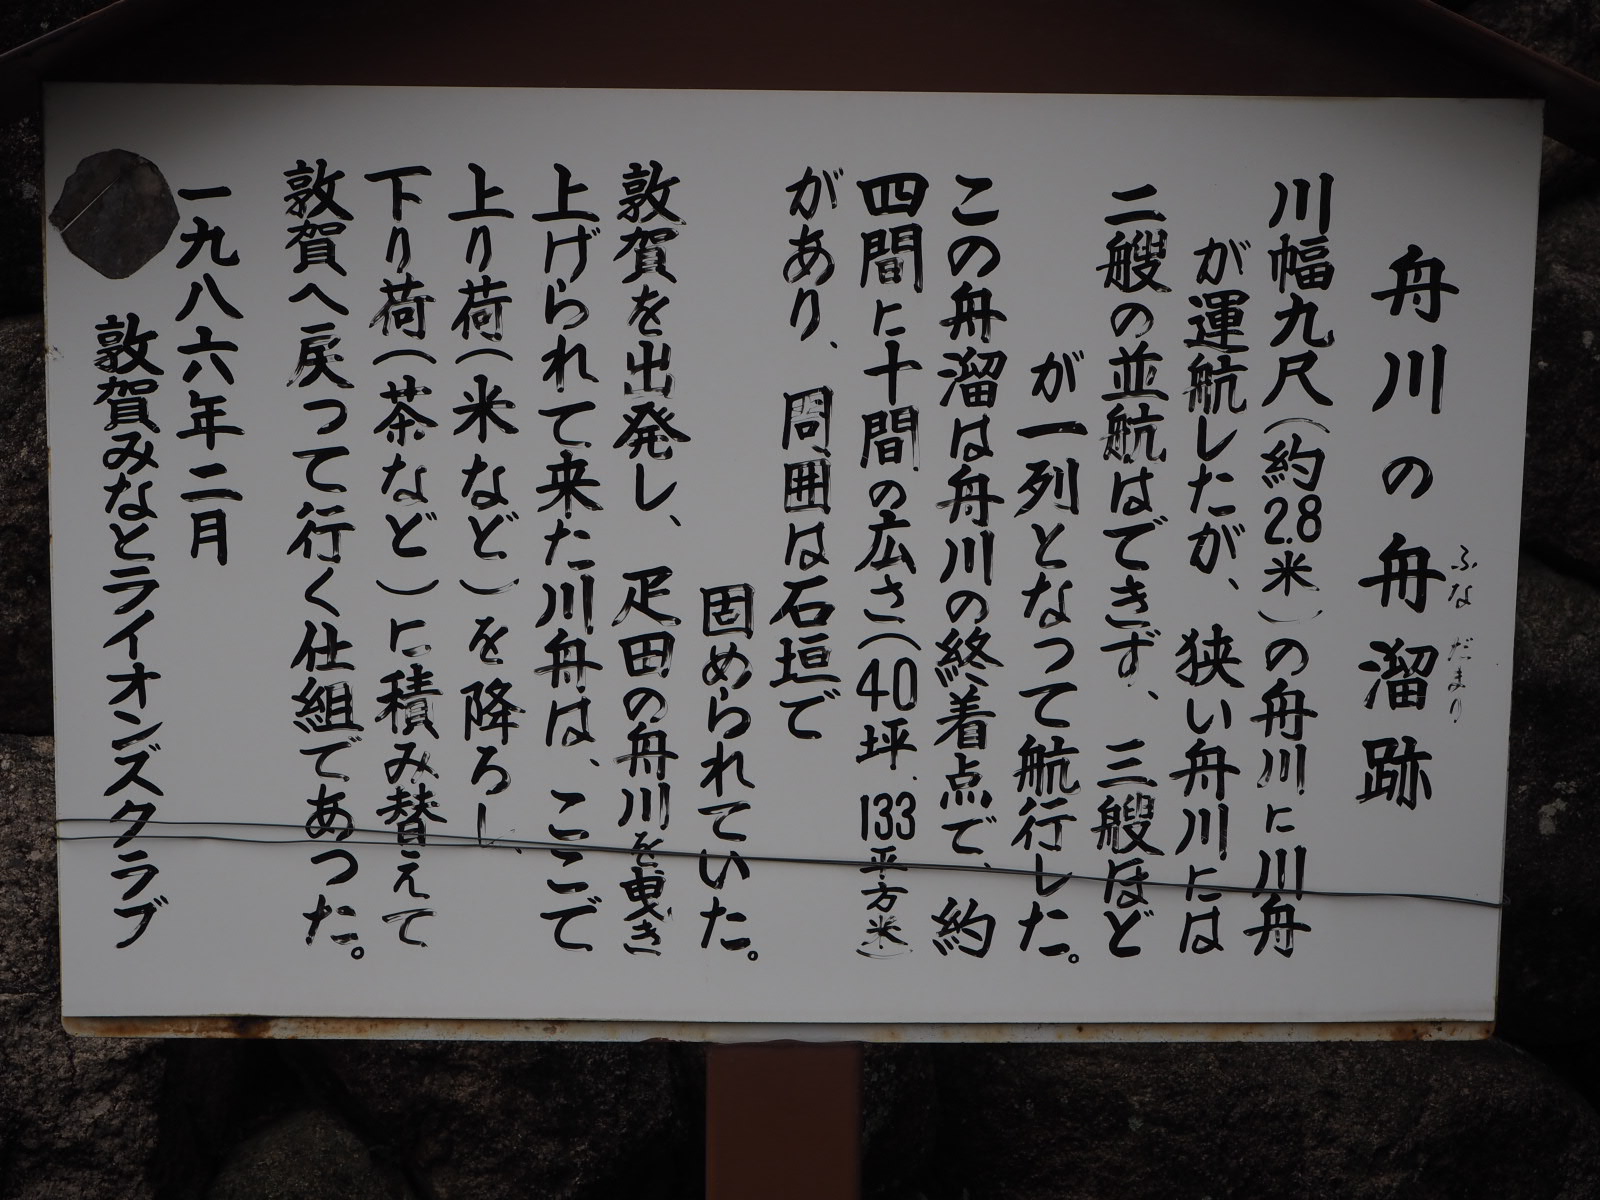 舟川の舟溜跡
ふなだまり
川幅九尺(約2.8米)の舟川に川舟
が運航したが、狭い舟川には
二艘の並航はできず、三艘ほど
が一列となって航行した。
この舟溜は舟川の終着点で、約
四間に十間の広さ(40坪、133平方米)
があり、周囲は石垣で
固められていた。
敦賀を出発し、疋田の舟川を曳き
上げられて来た川舟は、ここで
上り荷(米など)を降ろし、
下り荷(茶など)に積み替えて
敦賀へ戻って行く仕組であった。
一九八六年二月
敦賀みなとライオンズクラブ